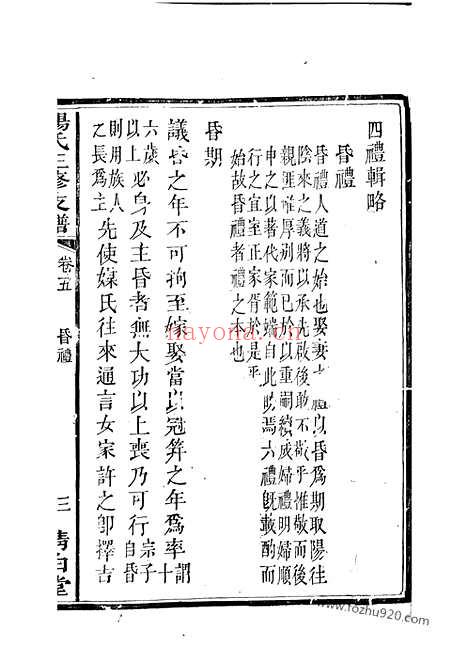 四禮輯略
昏禮
昏禮人道之始也娶妻以昏為期取陽往
陰來之義將以承先啟後敢不敬乎惟敬而後
親涯唯厚別而已於以重嗣續成婦禮明婦順
申之以著代家範端自此昉焉六禮既載酌而
行之宜室正家胥於是乎
始故昏禮者禮之本也
昏期
議昏之年不可拘至嫁娶當以冠筓之年為率謂十
六歲以上必身及主昏者無大功以上喪乃可行宗子自昏
則用族人之長為主先使媒氏往來通言女家許之卽擇吉
楊氏三修支譜
卷五
昏禮
三
清白堂
nayona.cn
www.fozhu920.com